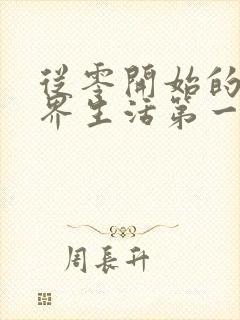 從零開始的
界生活第一
周長升